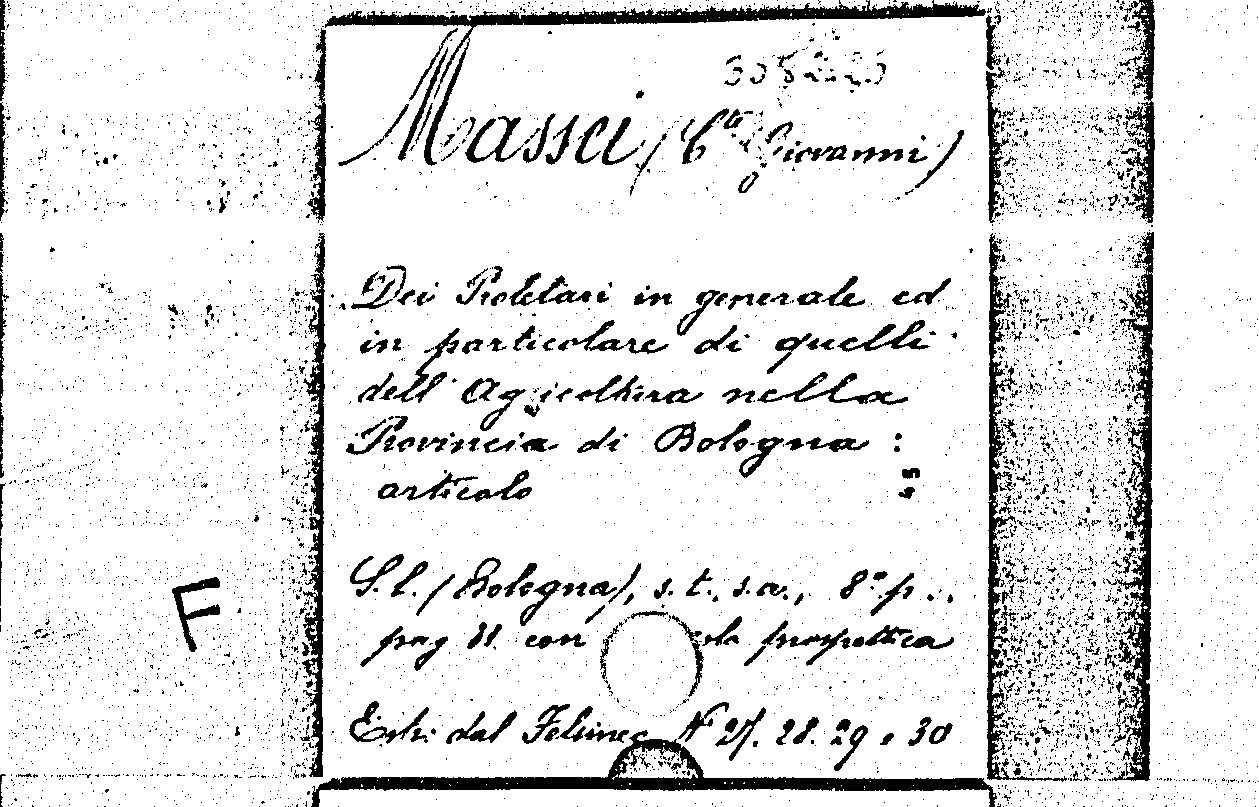 Massei (Cte Giovanni)
Dei Proletari in generale ed
in particolare di quelli
dell' Agricoltura nella
Provincia di Bologna :
articolo
S. l. (Bologna), s. t., s. a., 8° p..,
pag con prospettica
F
Estr. dal Felsineo N 27. 28. 29 e 30